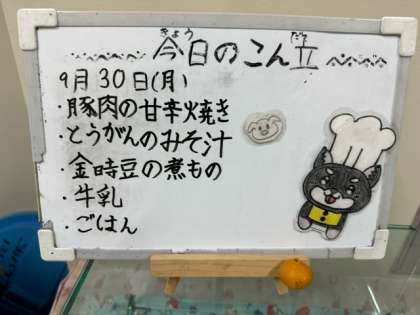 今日のこん立
きょう だて
9月30日(月)
・豚肉の甘辛焼き
・とうがんのみそ汁
・金時豆の煮もの
・牛乳
・ごはん